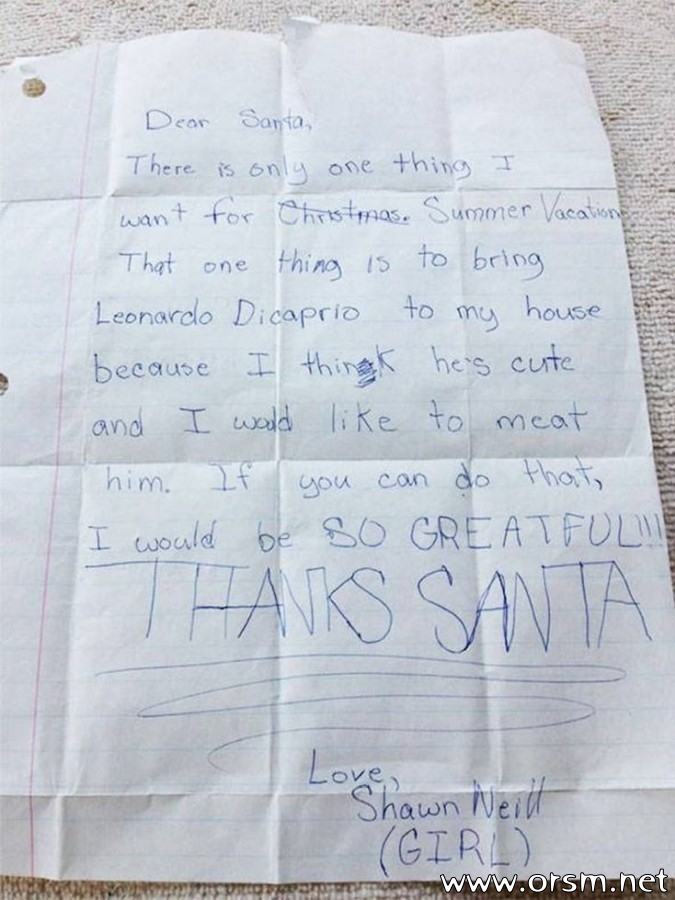 Dear Santa,
There is only one thing I
want for Christmas. Summer Vacation
That one thing is to bring
Leonardo Dicaprio to my house
because I think he's cute
and I would like to meat
him. If you can do that,
I would be SO GREATFUL!!!
THANKS SANTA
Love,
Shawn Neill
(GIRL)
www.orsm.net